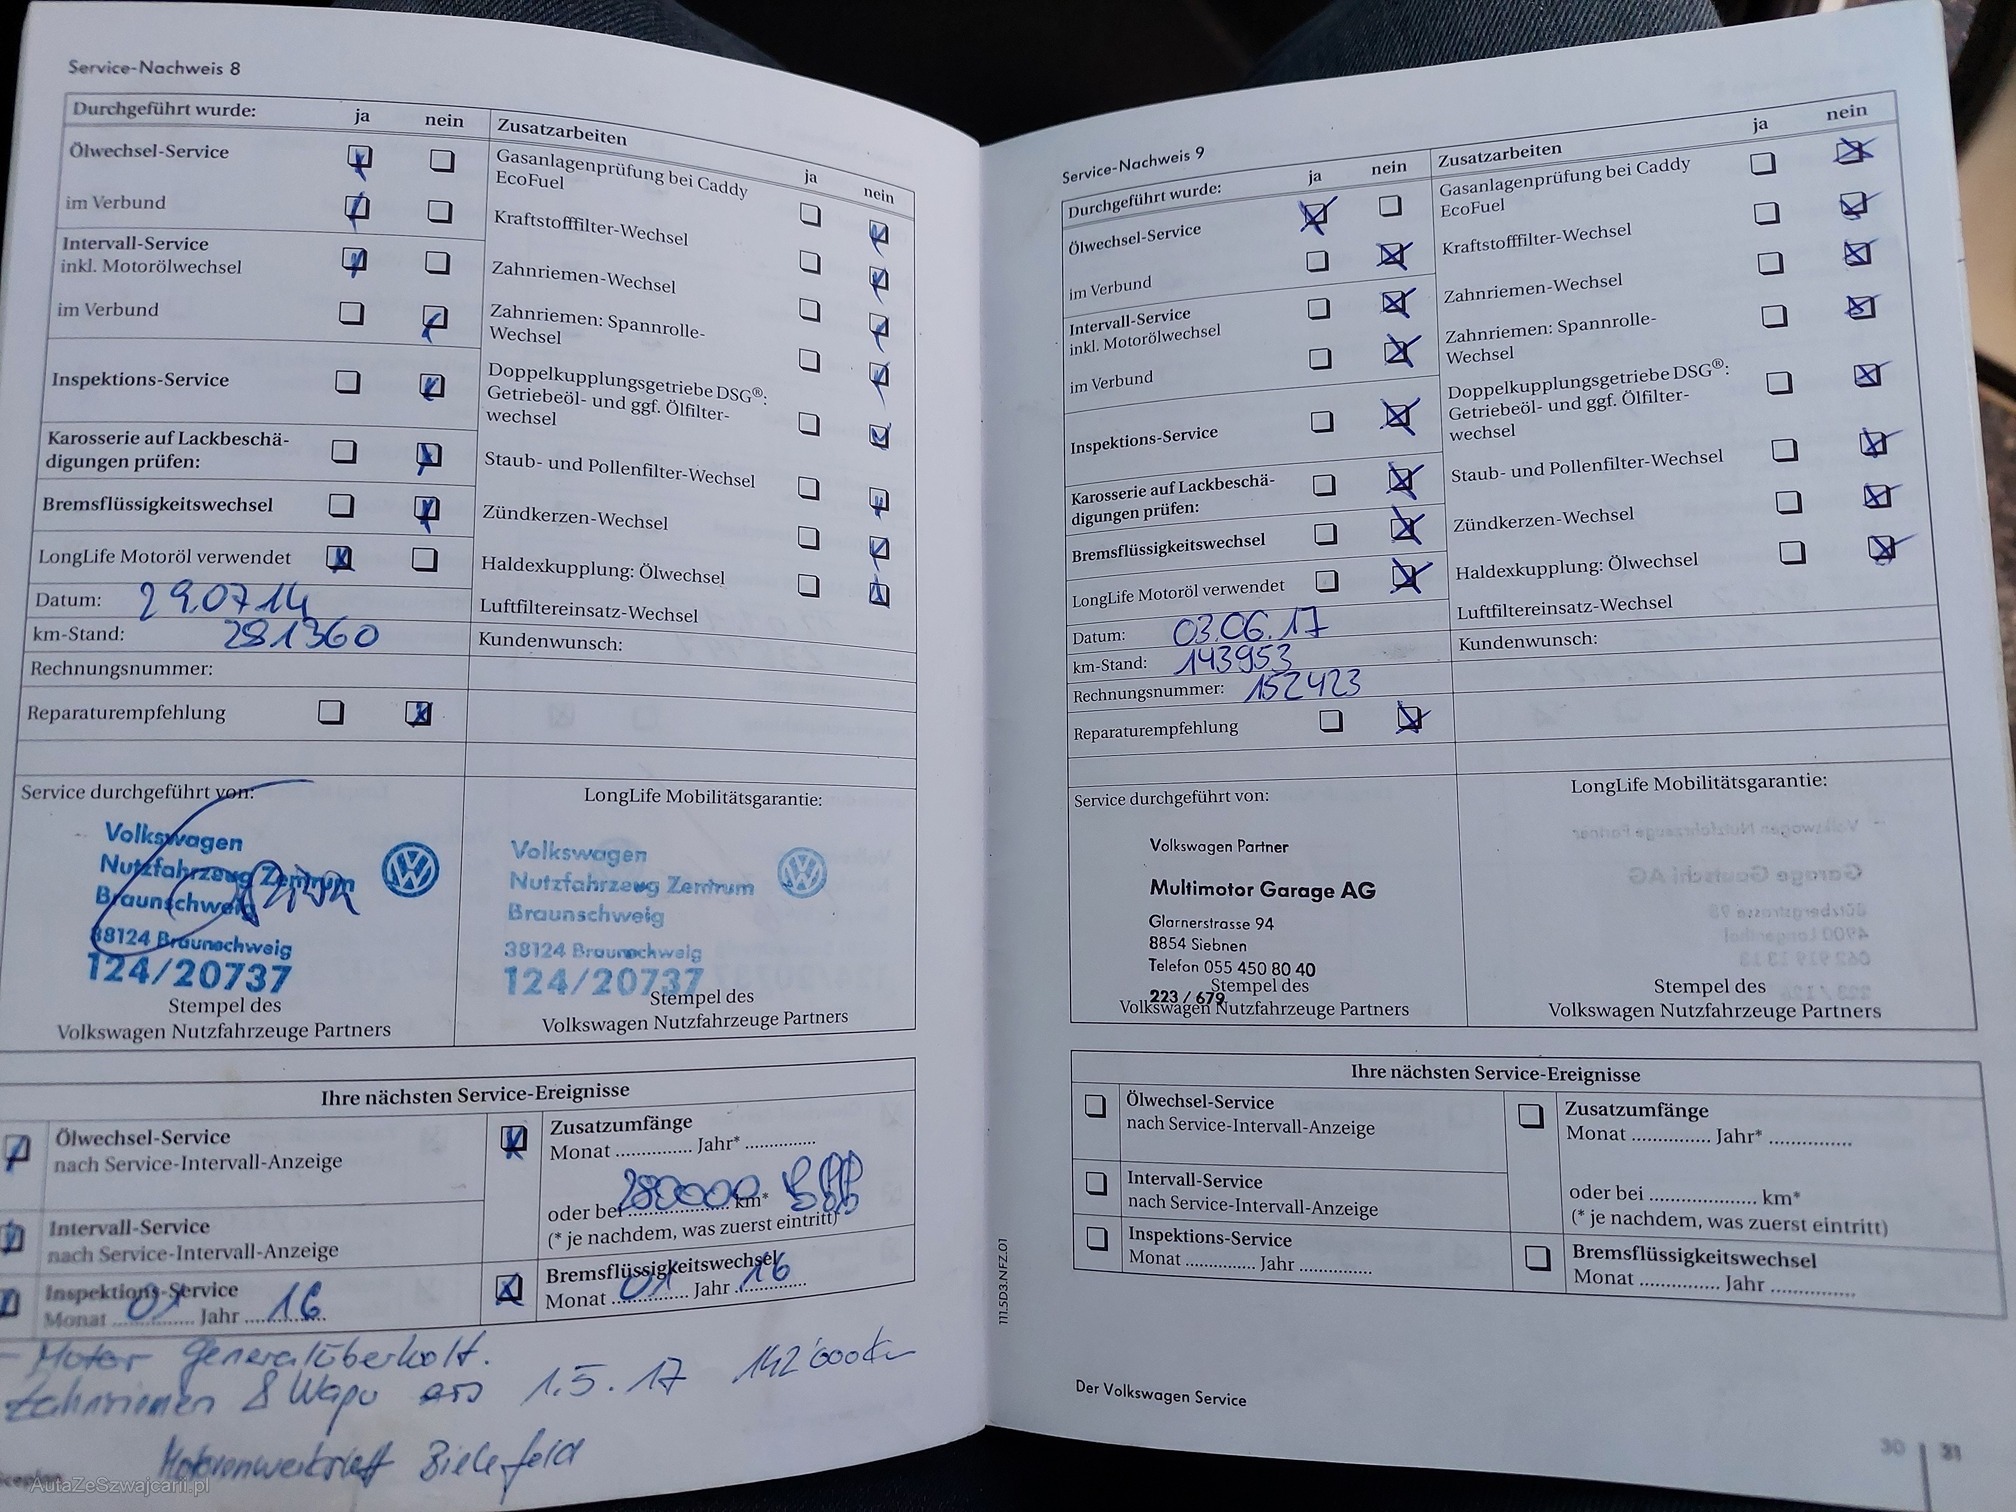 Service-Nachweis 8
Durchgeführt wurde: ja nein
Ölwechsel-Service
im Verbund
Intervall-Service
inkl. Motorölwechsel
im Verbund
Inspektions-Service
Karosserie auf Lackbeschä-
digungen prüfen:
Bremsflüssigkeitswechsel
LongLife Motoröl verwendet
Datum: 29.07.14
km-Stand: 281360
Rechnungsnummer:
Reparaturempfehlung
Zusatzarbeiten
ja nein
Gasanlagenprüfung bei Caddy
EcoFuel
Kraftstofffilter-Wechsel
Zahnriemen-Wechsel
Zahnriemen: Spannrolle-
Wechsel
Doppelkupplungsgetriebe DSG®:
Getriebeöl- und ggf. Ölfilter-
wechsel
Staub- und Pollenfilter-Wechsel
Zündkerzen-Wechsel
Haldexkupplung: Ölwechsel
Luftfiltereinsatz-Wechsel
Kundenwunsch:
Service durchgeführt von:
Volkswagen
Nutzfahrzeug Zentrum
Braunschweig
38124 Braunschweig
124/20737
Stempel des
Volkswagen Nutzfahrzeuge Partners
LongLife Mobilitätsgarantie:
Volkswagen
Nutzfahrzeug Zentrum
Braunschweig
38124 Braunschweig
124/20737
Stempel des
Volkswagen Nutzfahrzeuge Partners
Ihre nächsten Service-Ereignisse
Ölwechsel-Service
nach Service-Intervall-Anzeige
Intervall-Service
nach Service-Intervall-Anzeige
Inspektions-Service
Monat 01 Jahr 16
Zusatzumfänge
Monat ............... Jahr* ...............
oder bei 280000 km*
(* je nachdem, was zuerst eintritt)
Bremsflüssigkeitswechsel
Monat 01 Jahr 16
- Motor Generalüberholt.
Zahnriemen & Wapu 1.5.17 142'000km
Motorenwerkstatt Bielefeld
AutaZeSzwajcarii.pl
Service-Nachweis 9
Durchgeführt wurde: ja nein
Ölwechsel-Service
im Verbund
Intervall-Service
inkl. Motorölwechsel
im Verbund
Inspektions-Service
Karosserie auf Lackbeschä-
digungen prüfen:
Bremsflüssigkeitswechsel
LongLife Motoröl verwendet
Datum: 03.06.17
km-Stand: 143953
Rechnungsnummer: 152423
Reparaturempfehlung
Zusatzarbeiten
ja nein
Gasanlagenprüfung bei Caddy
EcoFuel
Kraftstofffilter-Wechsel
Zahnriemen-Wechsel
Zahnriemen: Spannrolle-
Wechsel
Doppelkupplungsgetriebe DSG®:
Getriebeöl- und ggf. Ölfilter-
wechsel
Staub- und Pollenfilter-Wechsel
Zündkerzen-Wechsel
Haldexkupplung: Ölwechsel
Luftfiltereinsatz-Wechsel
Kundenwunsch:
Service durchgeführt von:
Volkswagen Partner
Multimotor Garage AG
Glarnerstrasse 94
8854 Siebnen
Telefon 055 450 80 40
223 / 679
Stempel des
Volkswagen Nutzfahrzeuge Partners
LongLife Mobilitätsgarantie:
Stempel des
Volkswagen Nutzfahrzeuge Partners
Ihre nächsten Service-Ereignisse
Ölwechsel-Service
nach Service-Intervall-Anzeige
Intervall-Service
nach Service-Intervall-Anzeige
Inspektions-Service
Monat ............... Jahr ...............
Zusatzumfänge
Monat ............... Jahr* ...............
oder bei .................... km*
(* je nachdem, was zuerst eintritt)
Bremsflüssigkeitswechsel
Monat ............... Jahr ...............
111.5D3.NFZ.01
Der Volkswagen Service
31